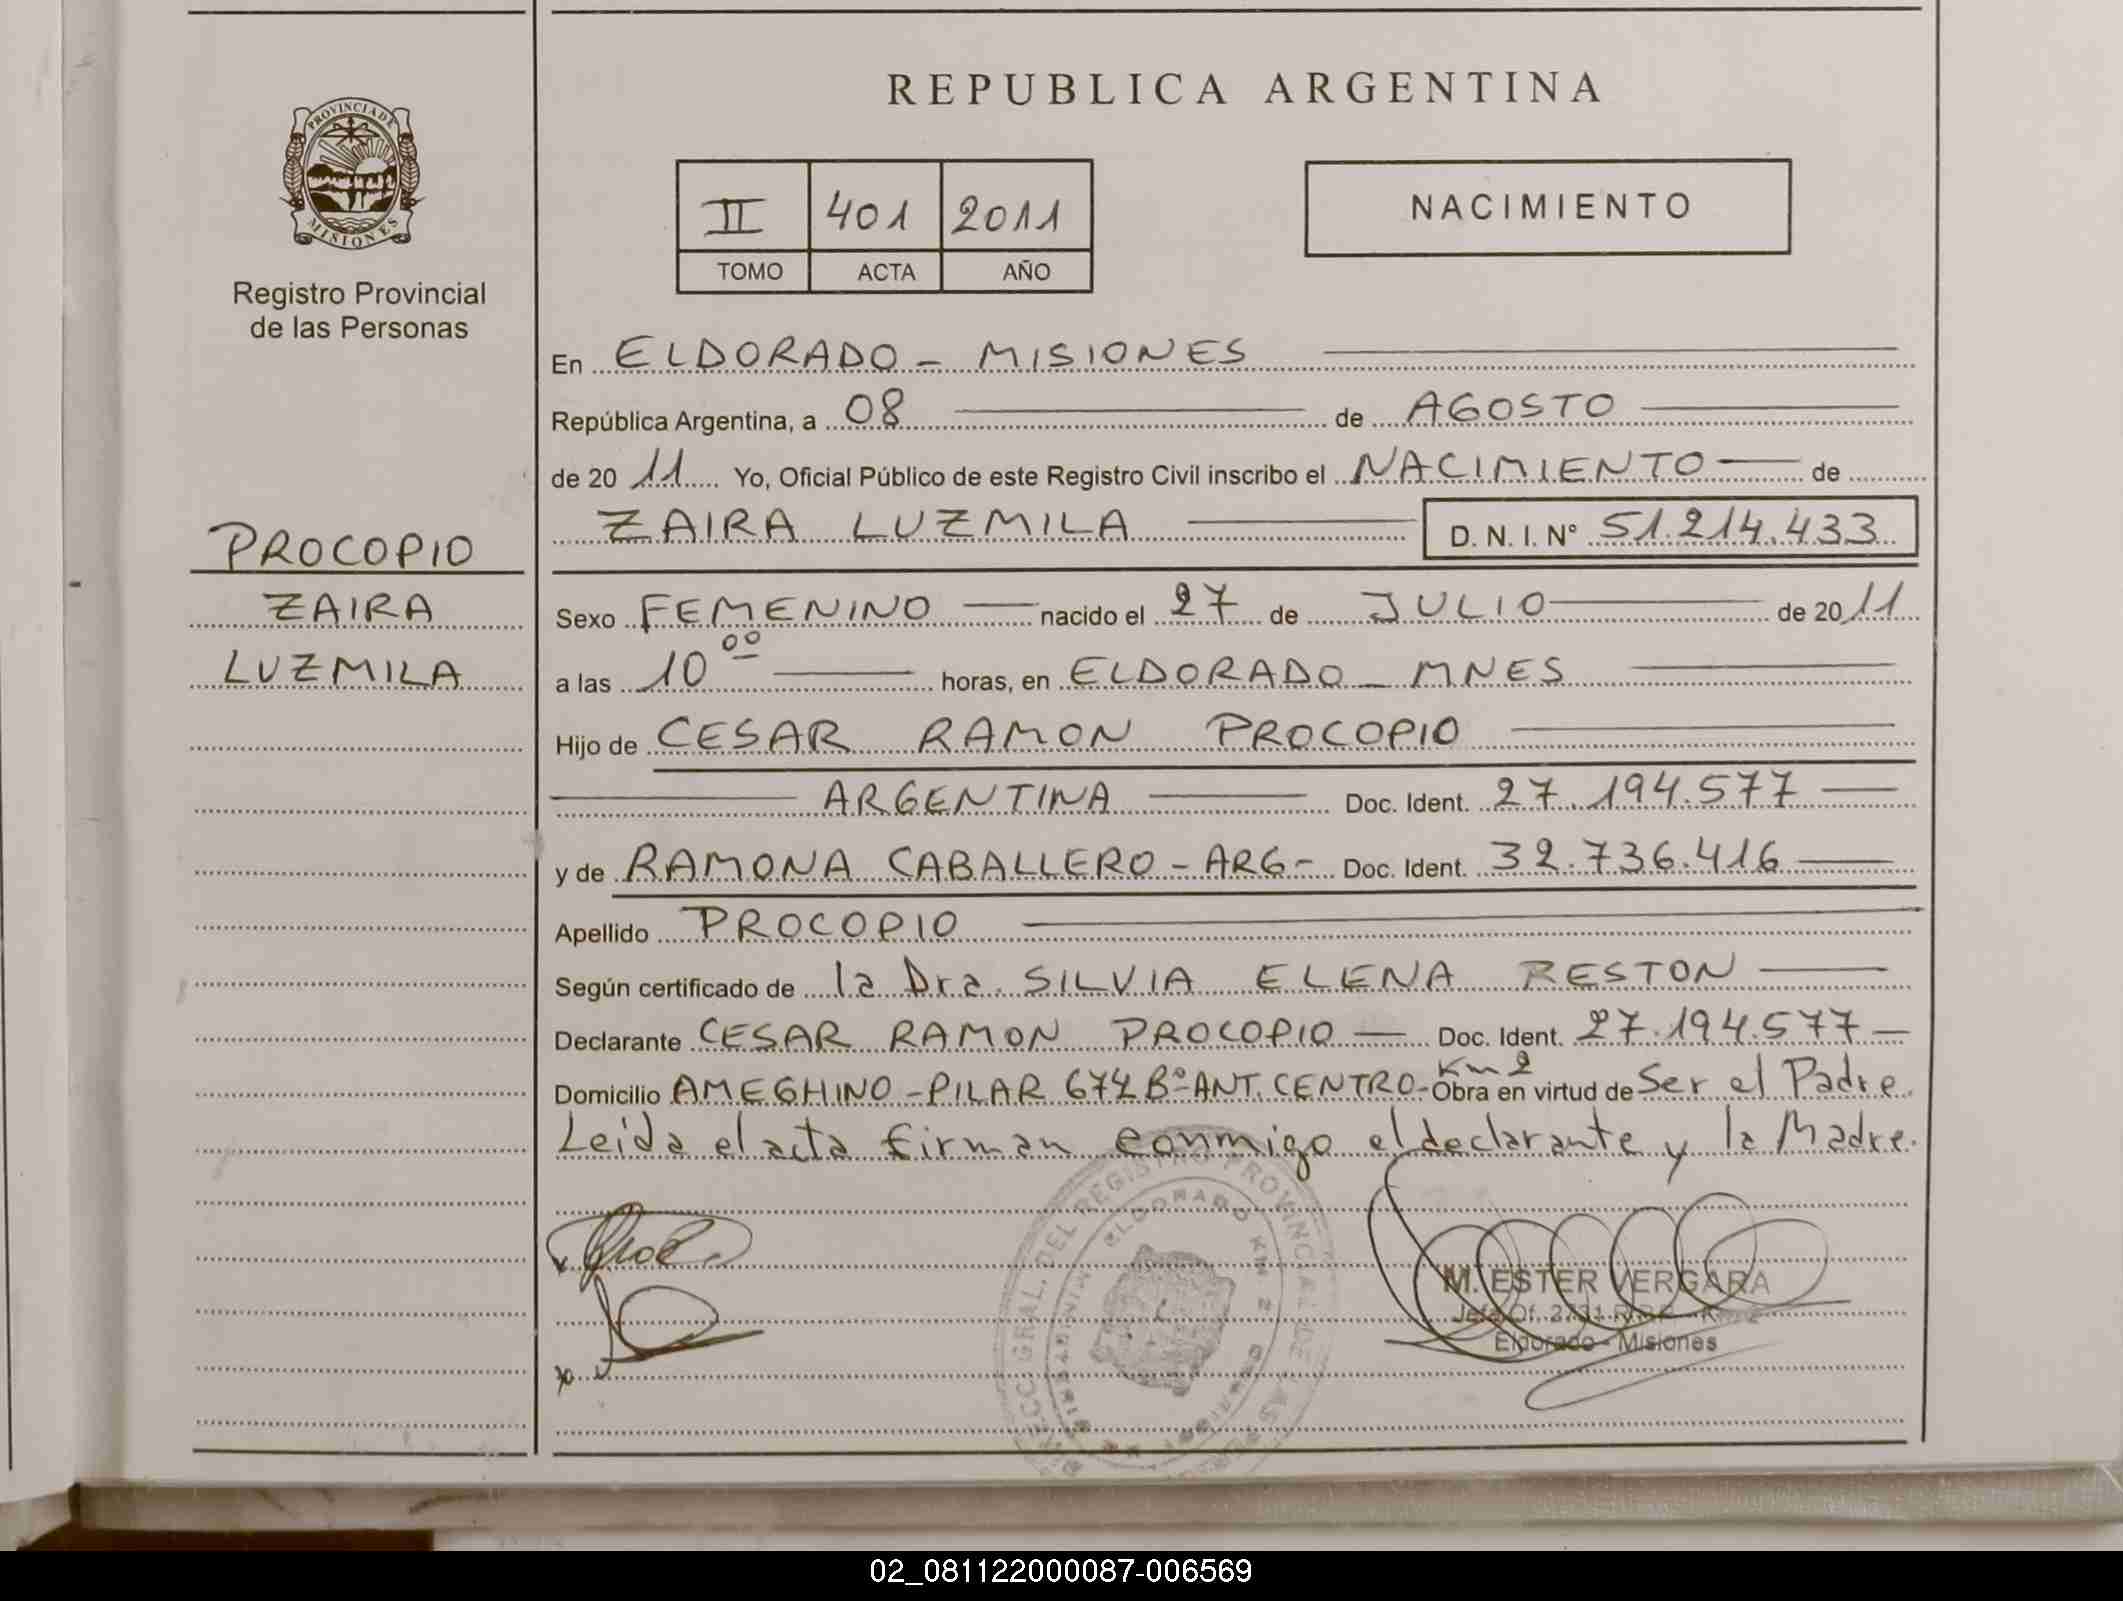 REPUBLICA ARGENTINA
PROVINCIA DE
MISIONES
Registro Provincial
de las Personas
II 401 2011
TOMO ACTA AÑO
NACIMIENTO
En ELDORADO - MISIONES
República Argentina, a 08 de AGOSTO
de 20 11 Yo, Oficial Público de este Registro Civil inscribo el NACIMIENTO de
ZAIRA LUZMILA D. N. I. N° 51.214.433
PROCOPIO
ZAIRA
LUZMILA
Sexo FEMENINO nacido el 27 de JULIO de 20 11
a las 10 00 horas, en ELDORADO - MNES
Hijo de CESAR RAMON PROCOPIO
ARGENTINA Doc. Ident. 27.194.577
y de RAMONA CABALLERO - ARG - Doc. Ident. 32.736.416
Apellido PROCOPIO
Según certificado de la Dra. SILVIA ELENA RESTON
Declarante CESAR RAMON PROCOPIO Doc. Ident. 27.194.577
Domicilio AMEGHINO - PILAR 674 B° ANT. CENTRO - Km 2 Obra en virtud de Ser el Padre.
Leida el acta firman conmigo el declarante y la Madre.
DIRECC. GRAL. DEL REGISTRO PROVINCIAL DE LAS
ELDORADO KM 2
MISIONES
M. ESTER VERGARA
Jefa Of. 2731 R.P.P. - Km 2
Eldorado - Misiones
02_081122000087-006569